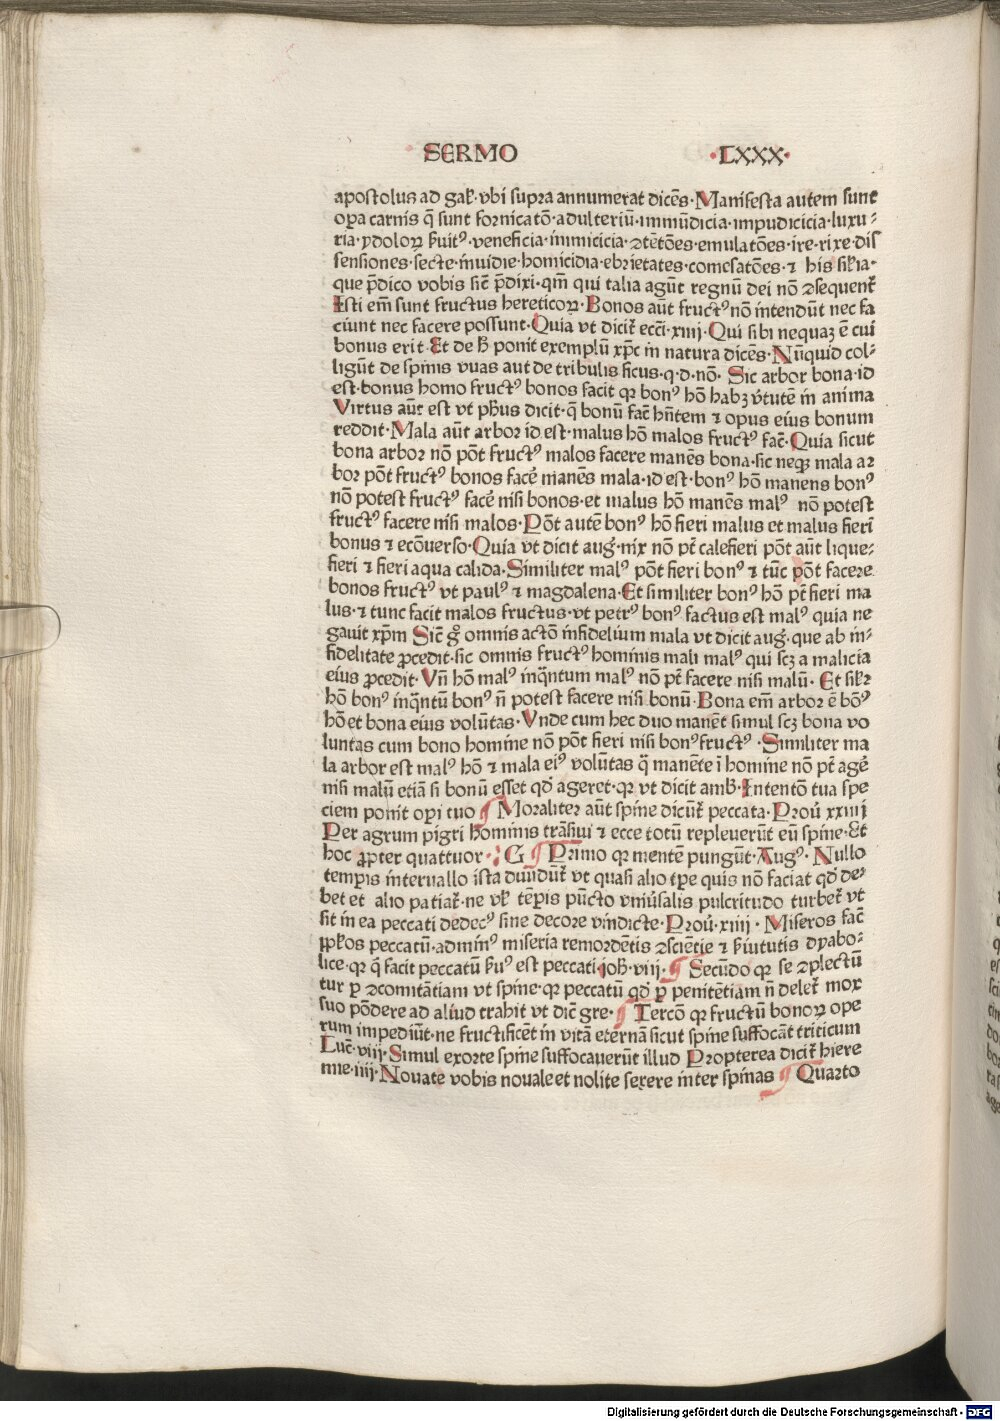 SERMO ·LXXX·
apostolus ad gal̄· vbi supra annumerat dicēs· Manifesta autem sunt
oꝑa carnis q̄ sunt fornicatō· adulteriū· immūdicia· impudicicia· luxu⸗
ria· ydoloꝝ ẜuitꝰ· veneficia· inimicicia· ꝯtētōes· emulatōes· ire· rixe· dis
sensiones· secte· inuidie· homicidia· ebrietates· comesatōes· ⁊ his sil̄ia·
que p̄dico vobis sic̄ p̄dixi· qm̄ qui talia agūt regnū dei nō ꝯsequent̄
Isti em̄ sunt fructus hereticoꝝ· Bonos aūt fructꝰ nō intendūt nec fa
ciunt nec facere possunt· Quia vt dicit̄ ecci· xiiij· Qui sibi nequaꝫ ē cui
bonus erit· Et de h̄ ponit exemplū xp̄c in natura dicēs· Nūquid col⸗
ligūt de spinis vuas aut de tribulis ficus· q· d· nō· Sic arbor bona· id
est· bonus homo fructꝰ bonos facit qꝛ bonꝰ hō habꝫ v̄tutē in anima
Virtus aūt est vt ph̄us dicit· q̄ bonū fac̄ hn̄tem ⁊ opus eius bonum
reddit· Mala aūt arbor id est· malus hō malos fructꝰ fac̄· Quia sicut
bona arbor nō pōt fructꝰ malos facere manēs bona· sic neqꝫ mala ar
bor pōt fructꝰ bonos facē manēs mala· id est· bonꝰ hō manens bonꝰ
nō potest fructꝰ facē nisi bonos· et malus hō manēs malꝰ nō potest
fructꝰ facere nisi malos· Pōt autē bonꝰ hō fieri malus et malus fieri
bonus ⁊ ecōuerso· Quia vt dicit auḡ· nix nō pt̄ calefieri pōt aūt lique⸗
fieri ⁊ fieri aqua calida· Similiter malꝰ pōt fieri bonꝰ ⁊ tūc pōt facere
bonos fructꝰ vt paulꝰ ⁊ magdalena· Et similiter bonꝰ hō pt̄ fieri ma
lus· ⁊ tunc facit malos fructus· vt petrꝰ bonꝰ factus est malꝰ quia ne
gauit xp̄m Sic̄ gͦ omnis actō infidelium mala vt dicit auḡ· que ab in⸗
fidelitate ꝓcedit· sic omnis fructꝰ hominis mali malꝰ qui scꝫ a malicia
eius ꝓcedit· Vn̄ hō malꝰ inq̄ntum malꝰ nō pt̄ facere nisi malū· Et sil̄r
hō bonꝰ inq̄ntū bonꝰ n̄ potest facere nisi bonū· Bona em̄ arbor ē bōꝰ
hō et bona eius volūtas· Vnde cum hec duo manēt simul scꝫ bona vo
luntas cum bono homine nō pōt fieri nisi bonꝰ fructꝰ· Similiter ma
la arbor est malꝰ hō ⁊ mala eiꝰ volūtas q̄ manēte ī homine nō pt̄ agē
nisi malū etiā si bonū esset qd̄ ageret· qꝛ vt dicit amb̄· Intentō tua spe
ciem ponit opi tuo ¶ Moraliter aūt spine dicūt̄ peccata· Prou̇ xxiiij
Per agrum pigri hominis trāsiui ⁊ ecce totū repleuerūt eū spine· Et
hoc ꝓpter quattuor· G ¶ Primo qꝛ mentē pungūt· Augꝰ· Nullo
temꝑis interuallo ista diuidūt̄ vt quasi alio tꝑe quis nō faciat qd̄ de⸗
bet et alio patiat̄· ne vl̄ tēꝑis pūcto vniūsalis pulcritudo turbet̄ vt
sit in ea peccati dedecꝰ sine decore vindicte· Prou̇· xiiij· Miseros fac̄
ppl̄os peccatū· adminꝰ miseria remordētis ꝯsciētie ⁊ ẜuitutis dyabo⸗
lice· qꝛ q̄ facit peccatū ẜuꝰ est peccati job̄· viij· ¶ Secūdo qꝛ se ꝯplectū
tur ꝑ ꝯcomitātiam vt spine· qꝛ peccatū qd̄ ꝑ penitētiam n̄ delet̄ mox
suo pōdere ad aliud trahit vt dic̄ gre· ¶ Tercō qꝛ fructū bonoꝝ ope
rum impediūt· ne fructificēt in vitā eternā sicut spine suffocāt triticum
Luc̄· viij· Simul exorte spine suffocauerūt illud Propterea dicit̄ hiere
mie· iiij· Nouate vobis nouale et nolite serere inter spinas ¶ Quarto
Digitalisierung gefördert durch die Deutsche Forschungsgemeinschaft - DFG